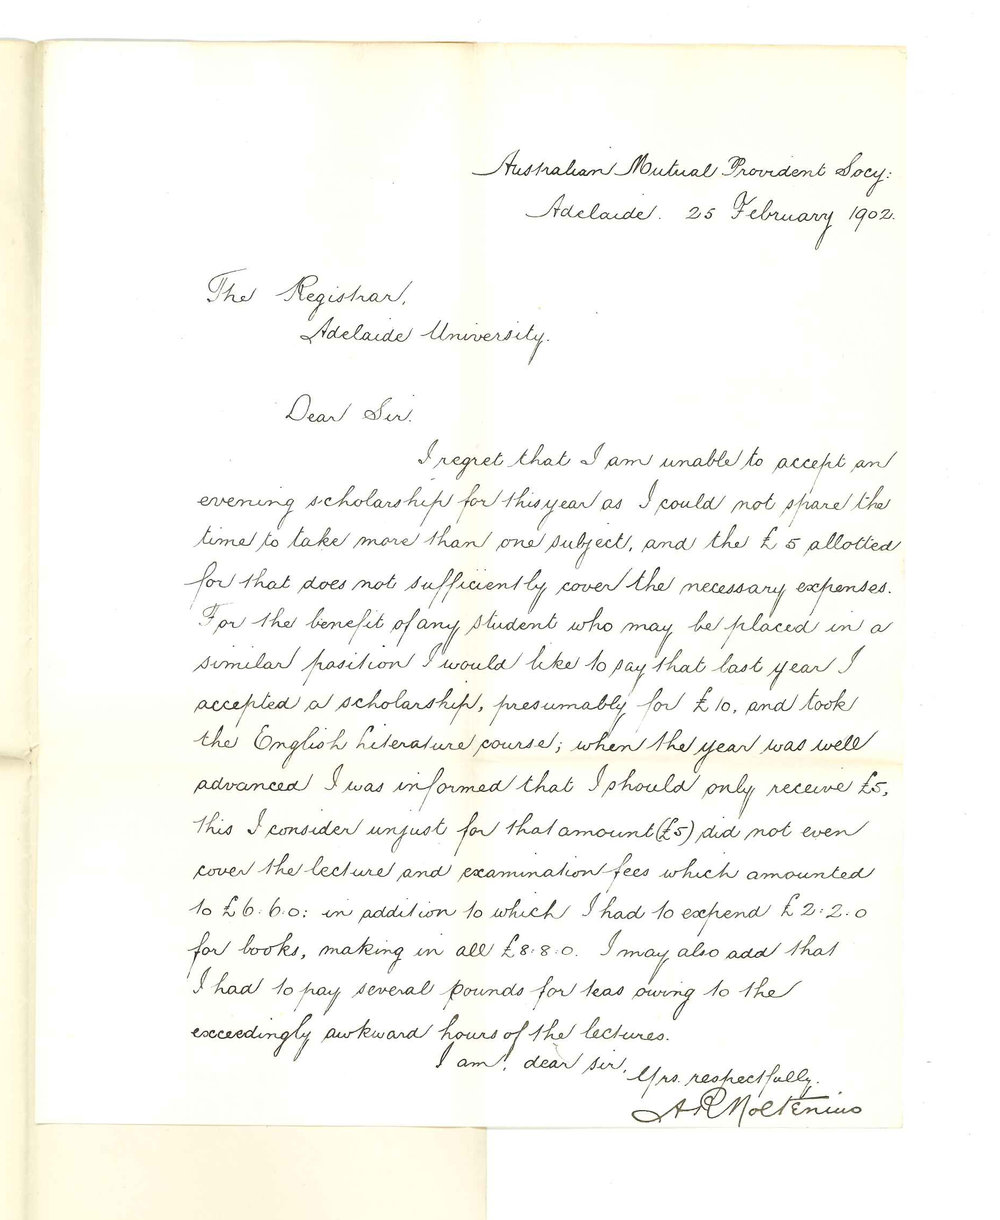 Australian Mutual Provident Socy:
Adelaide. 25 February 1902.
The Registrar,
Adelaide University.
Dear Sir.
I regret that I am unable to accept an
evening scholarship for this year as I could not spare the
time to take more than one subject, and the £5 allotted
for that does not sufficiently cover the necessary expenses.
For the benefit of any student who may be placed in a
similar position I would like to say that last year I
accepted a scholarship, presumably for £10, and took
the English Literature course; when the year was well
advanced I was informed that I should only receive £5,
this I consider unjust for that amount (£5) did not even
cover the lecture and examination fees which amounted
to £6:6:0: in addition to which I had to expend £2:2:0
for books, making in all £8:8:0. I may also add that
I had to pay several pounds for teas owing to the
exceedingly awkward hours of the lectures.
I am, dear sir,
Yrs. respectfully.